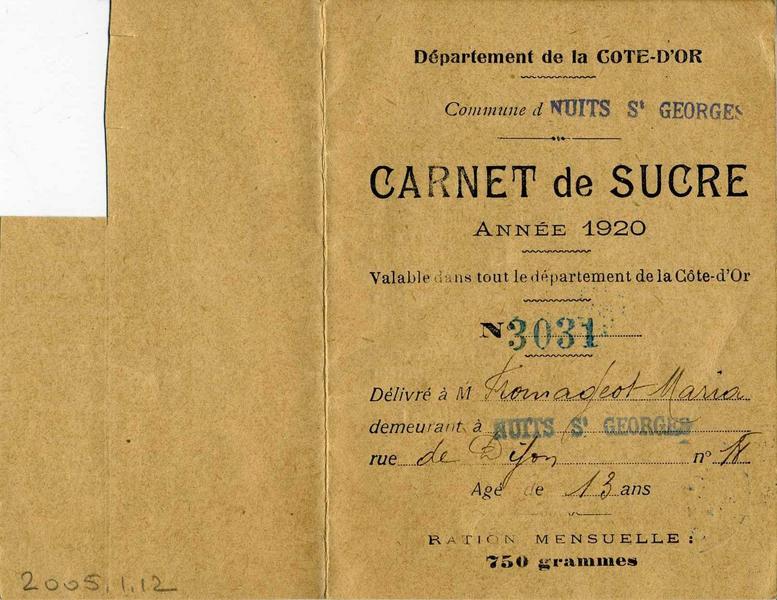 Département de la COTE-D'OR
Commune d NUITS St GEORGES
CARNET de SUCRE
ANNÉE 1920
Valable dans tout le département de la Côte-d'Or
N 3031
Délivré à M Fromageot Maria
demeurant à NUITS St GEORGES
rue de Dijon n°
Agé de 13 ans
RATION MENSUELLE :
750 grammes
2005.1.12